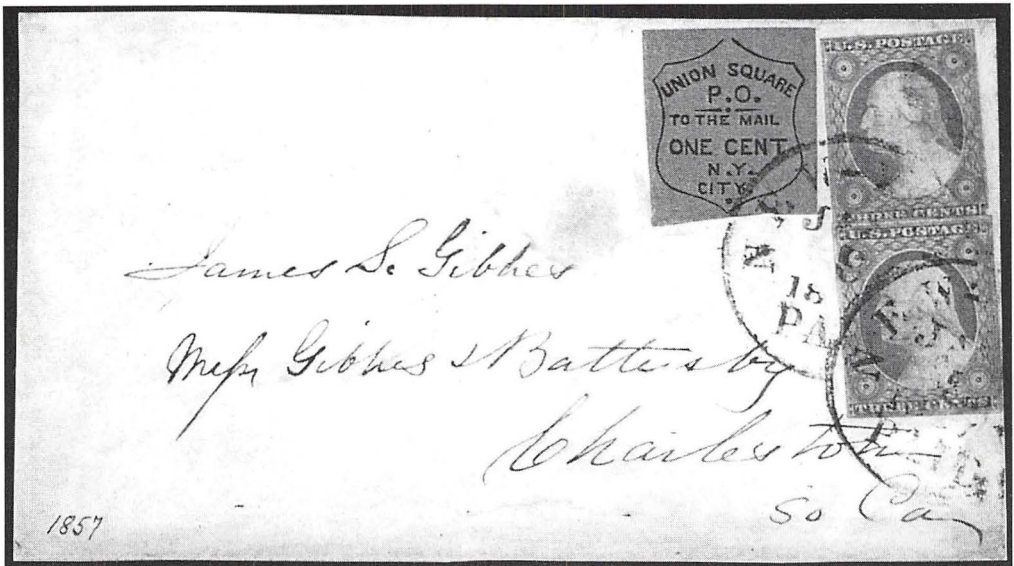 UNION SQUARE
P.O.
TO THE MAIL
ONE CENT
N.Y.
CITY.
U.S. POSTAGE
THREE CENTS
U.S. POSTAGE
THREE CENTS
NEW
18
PA
James S. Gibbes
Messr Gibbes & Battersby
Charleston
So Ca
1857